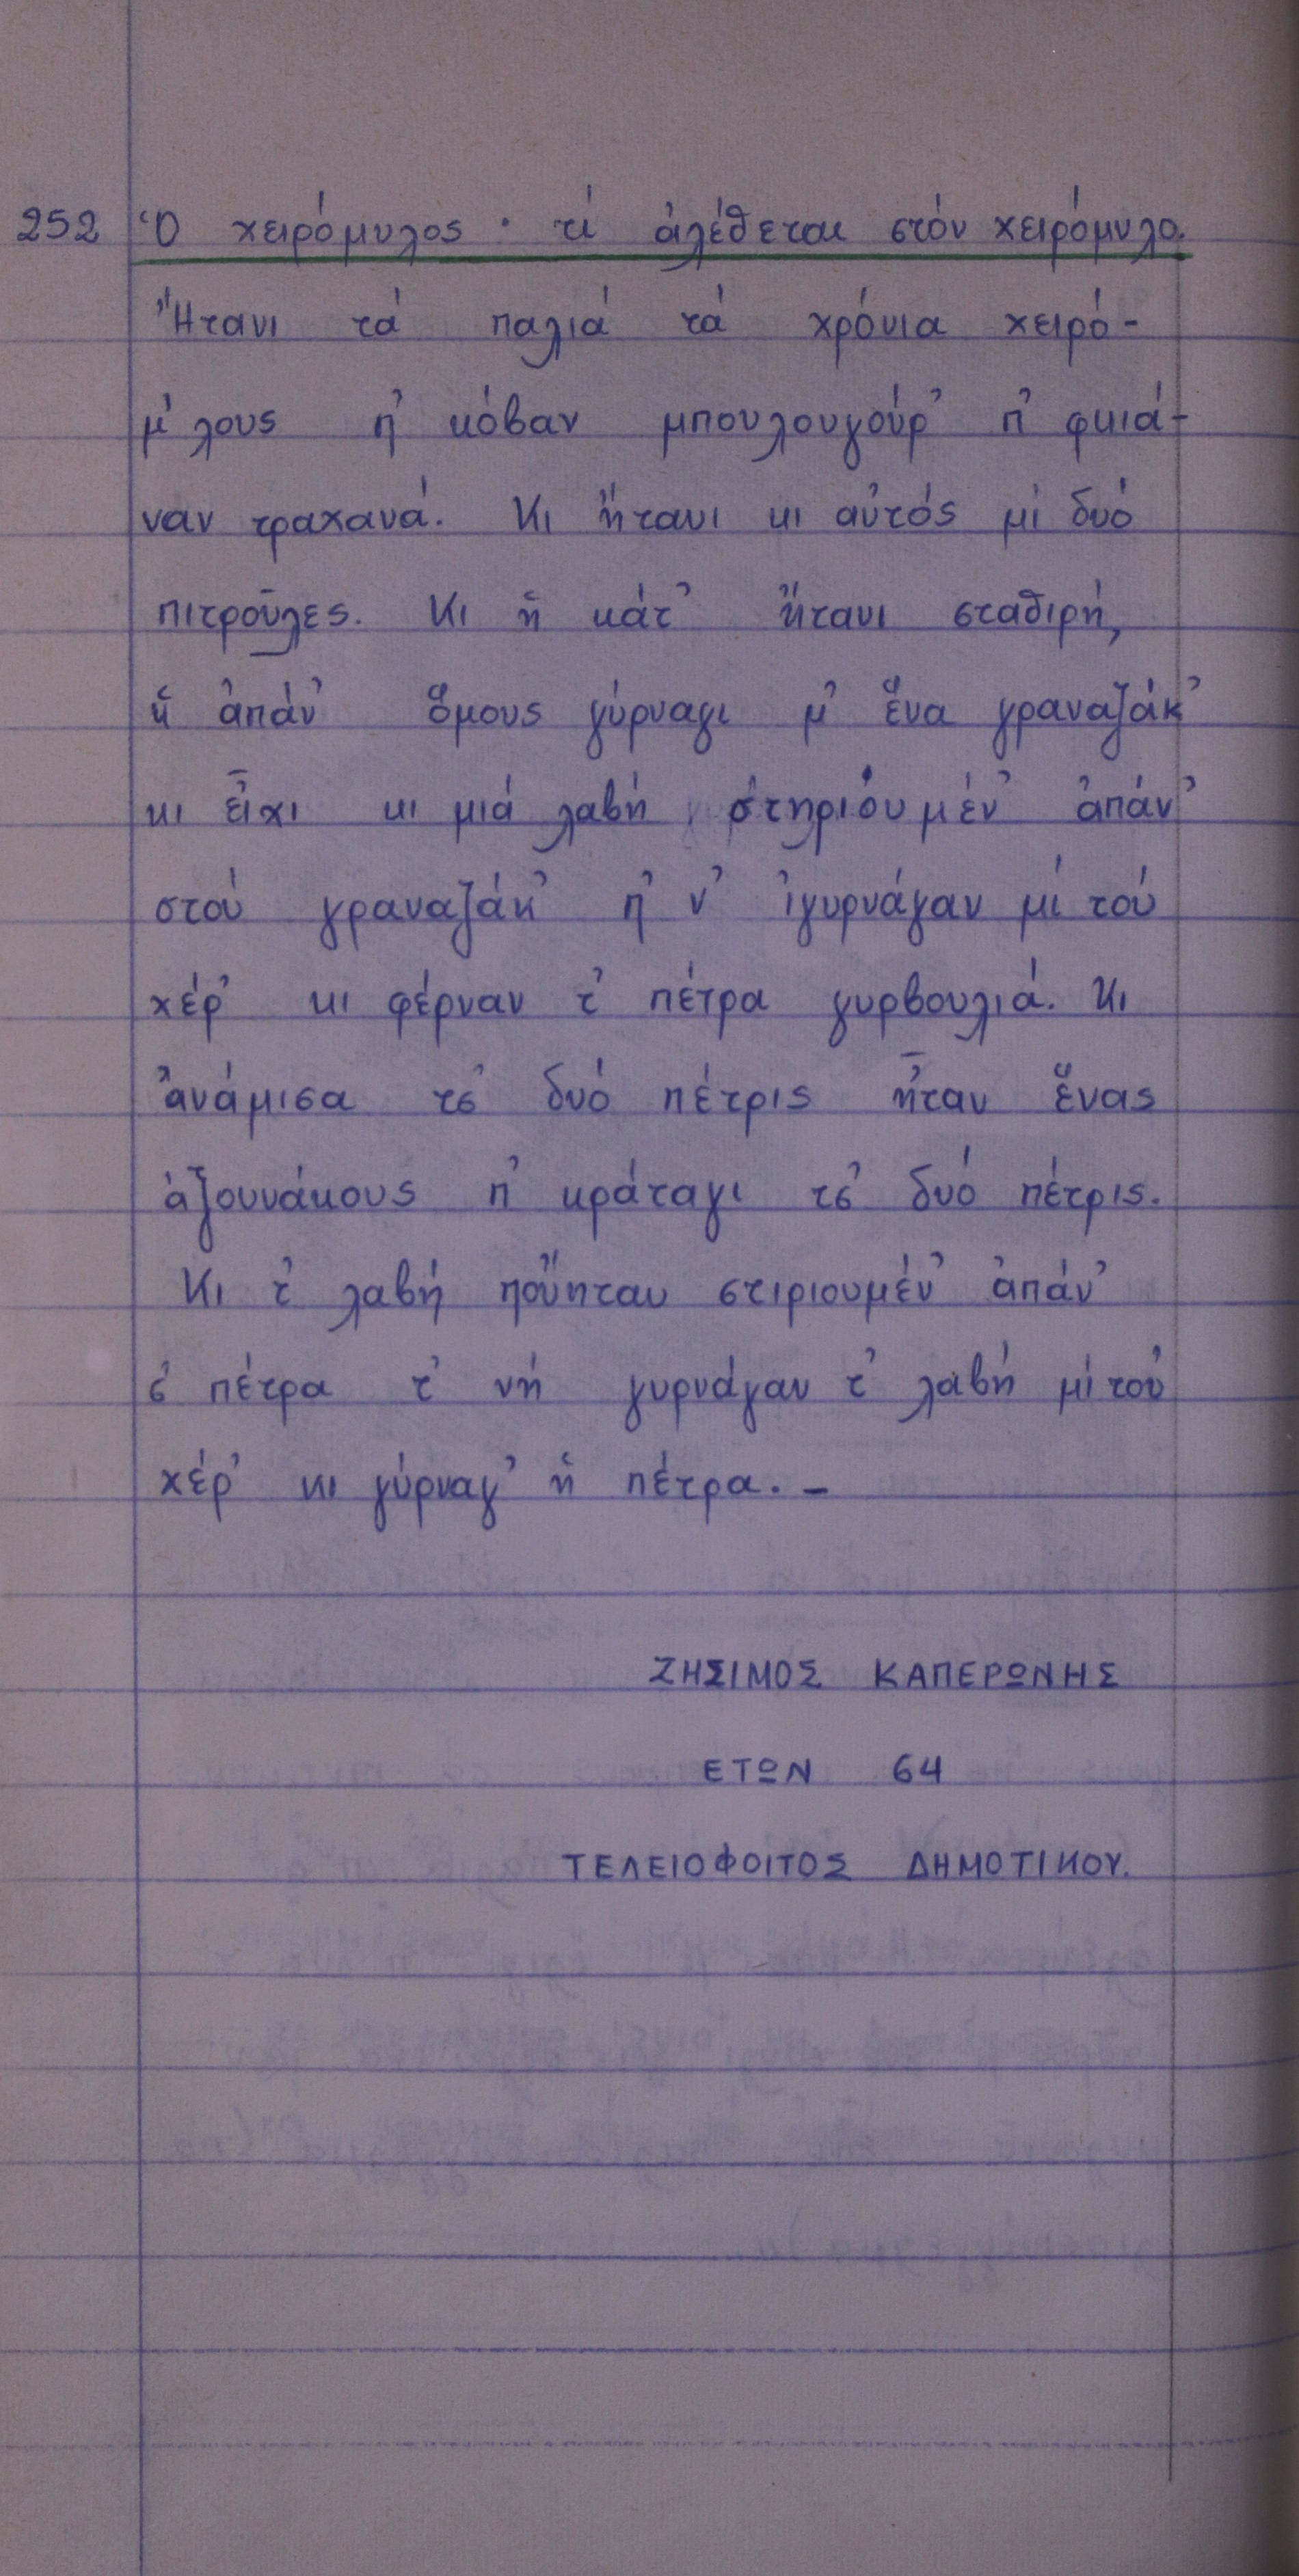 252 Ὁ χειρόμυλος · τί ἀλέθεται στόν χειρόμυλο.
Ἤτανι τά παλιά τά χρόνια χειρό-
μ'λους π' κόβαν μπουλουγούρ' π' φκιά-
ναν τραχανά. Κι ἤτανι κι αὐτός μί δυό
πιτροῦλες. Κι ἥ κάτ' ἤτανι σταθιρή,
ἥ ἀπάν' ὅμους γύρναγι μ' ἕνα γραναζάκ'
κι εἶχι κι μιά λαβή στηριόυμέν' ἀπάν'
στού γραναζάκ' π' ν' ἰγυρνάγαν μί τού
χέρ' κι φέρναν τ' πέτρα γυρβουλιά. Κι
ἀνάμισα τσ' δυό πέτρις ἦταν ἕνας
ἀξουνάκους π' κράταγι τσ' δυό πέτρις.
Κι τ' λαβή ποὔηταν στιριουμέν' ἀπάν'
σ' πέτρα τ' νή γυρνάγαν τ' λαβή μί τού
χέρ' κι γύρναγ' ἡ πέτρα. –
ΖΗΣΙΜΟΣ ΚΑΠΕΡΩΝΗΣ
ΕΤΩΝ 64
ΤΕΛΕΙΟΦΟΙΤΟΣ ΔΗΜΟΤΙΚΟΥ.